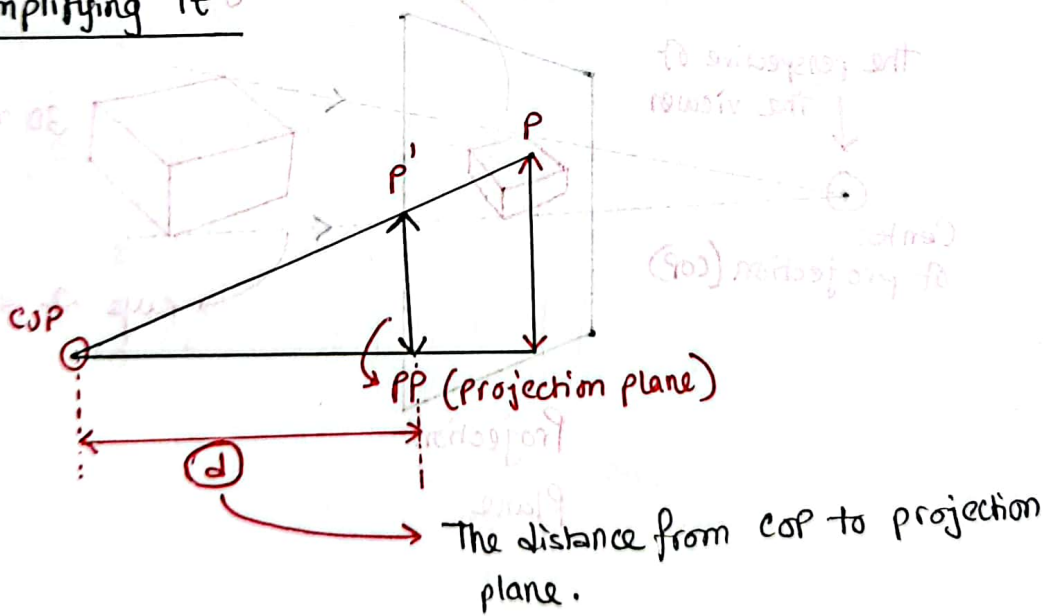 mplifying it
P
P'
COP
PP (projection plane)
d
The distance from COP to projection
plane.